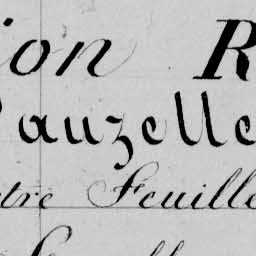 ion R
auzelle
tre Feuille